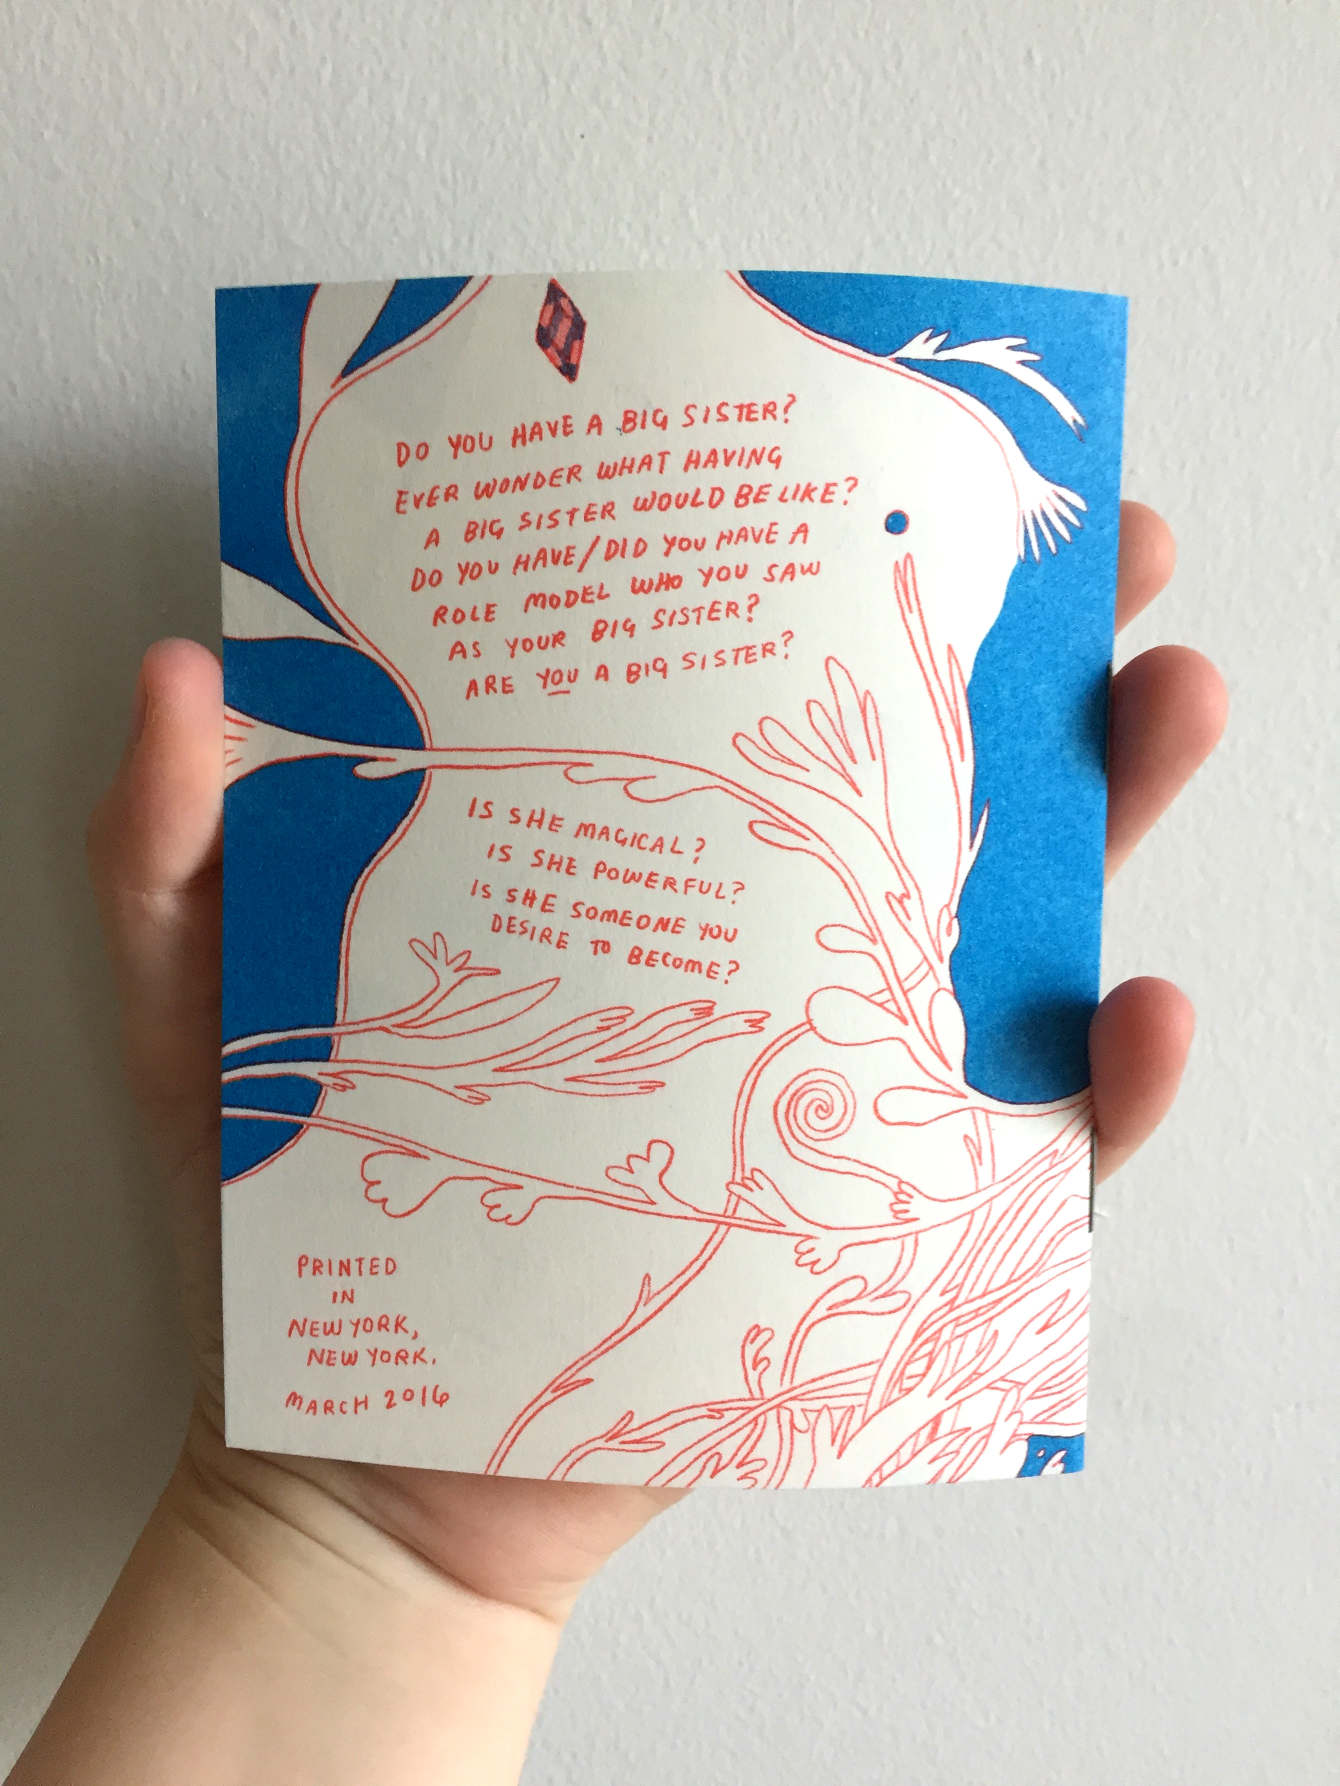 DO YOU HAVE A BIG SISTER?
EVER WONDER WHAT HAVING
A BIG SISTER WOULD BE LIKE?
DO YOU HAVE/DID YOU HAVE A
ROLE MODEL WHO YOU SAW
AS YOUR BIG SISTER?
ARE YOU A BIG SISTER?
IS SHE MAGICAL?
IS SHE POWERFUL?
IS SHE SOMEONE YOU
DESIRE TO BECOME?
PRINTED
IN
NEW YORK,
NEW YORK.
MARCH 2016